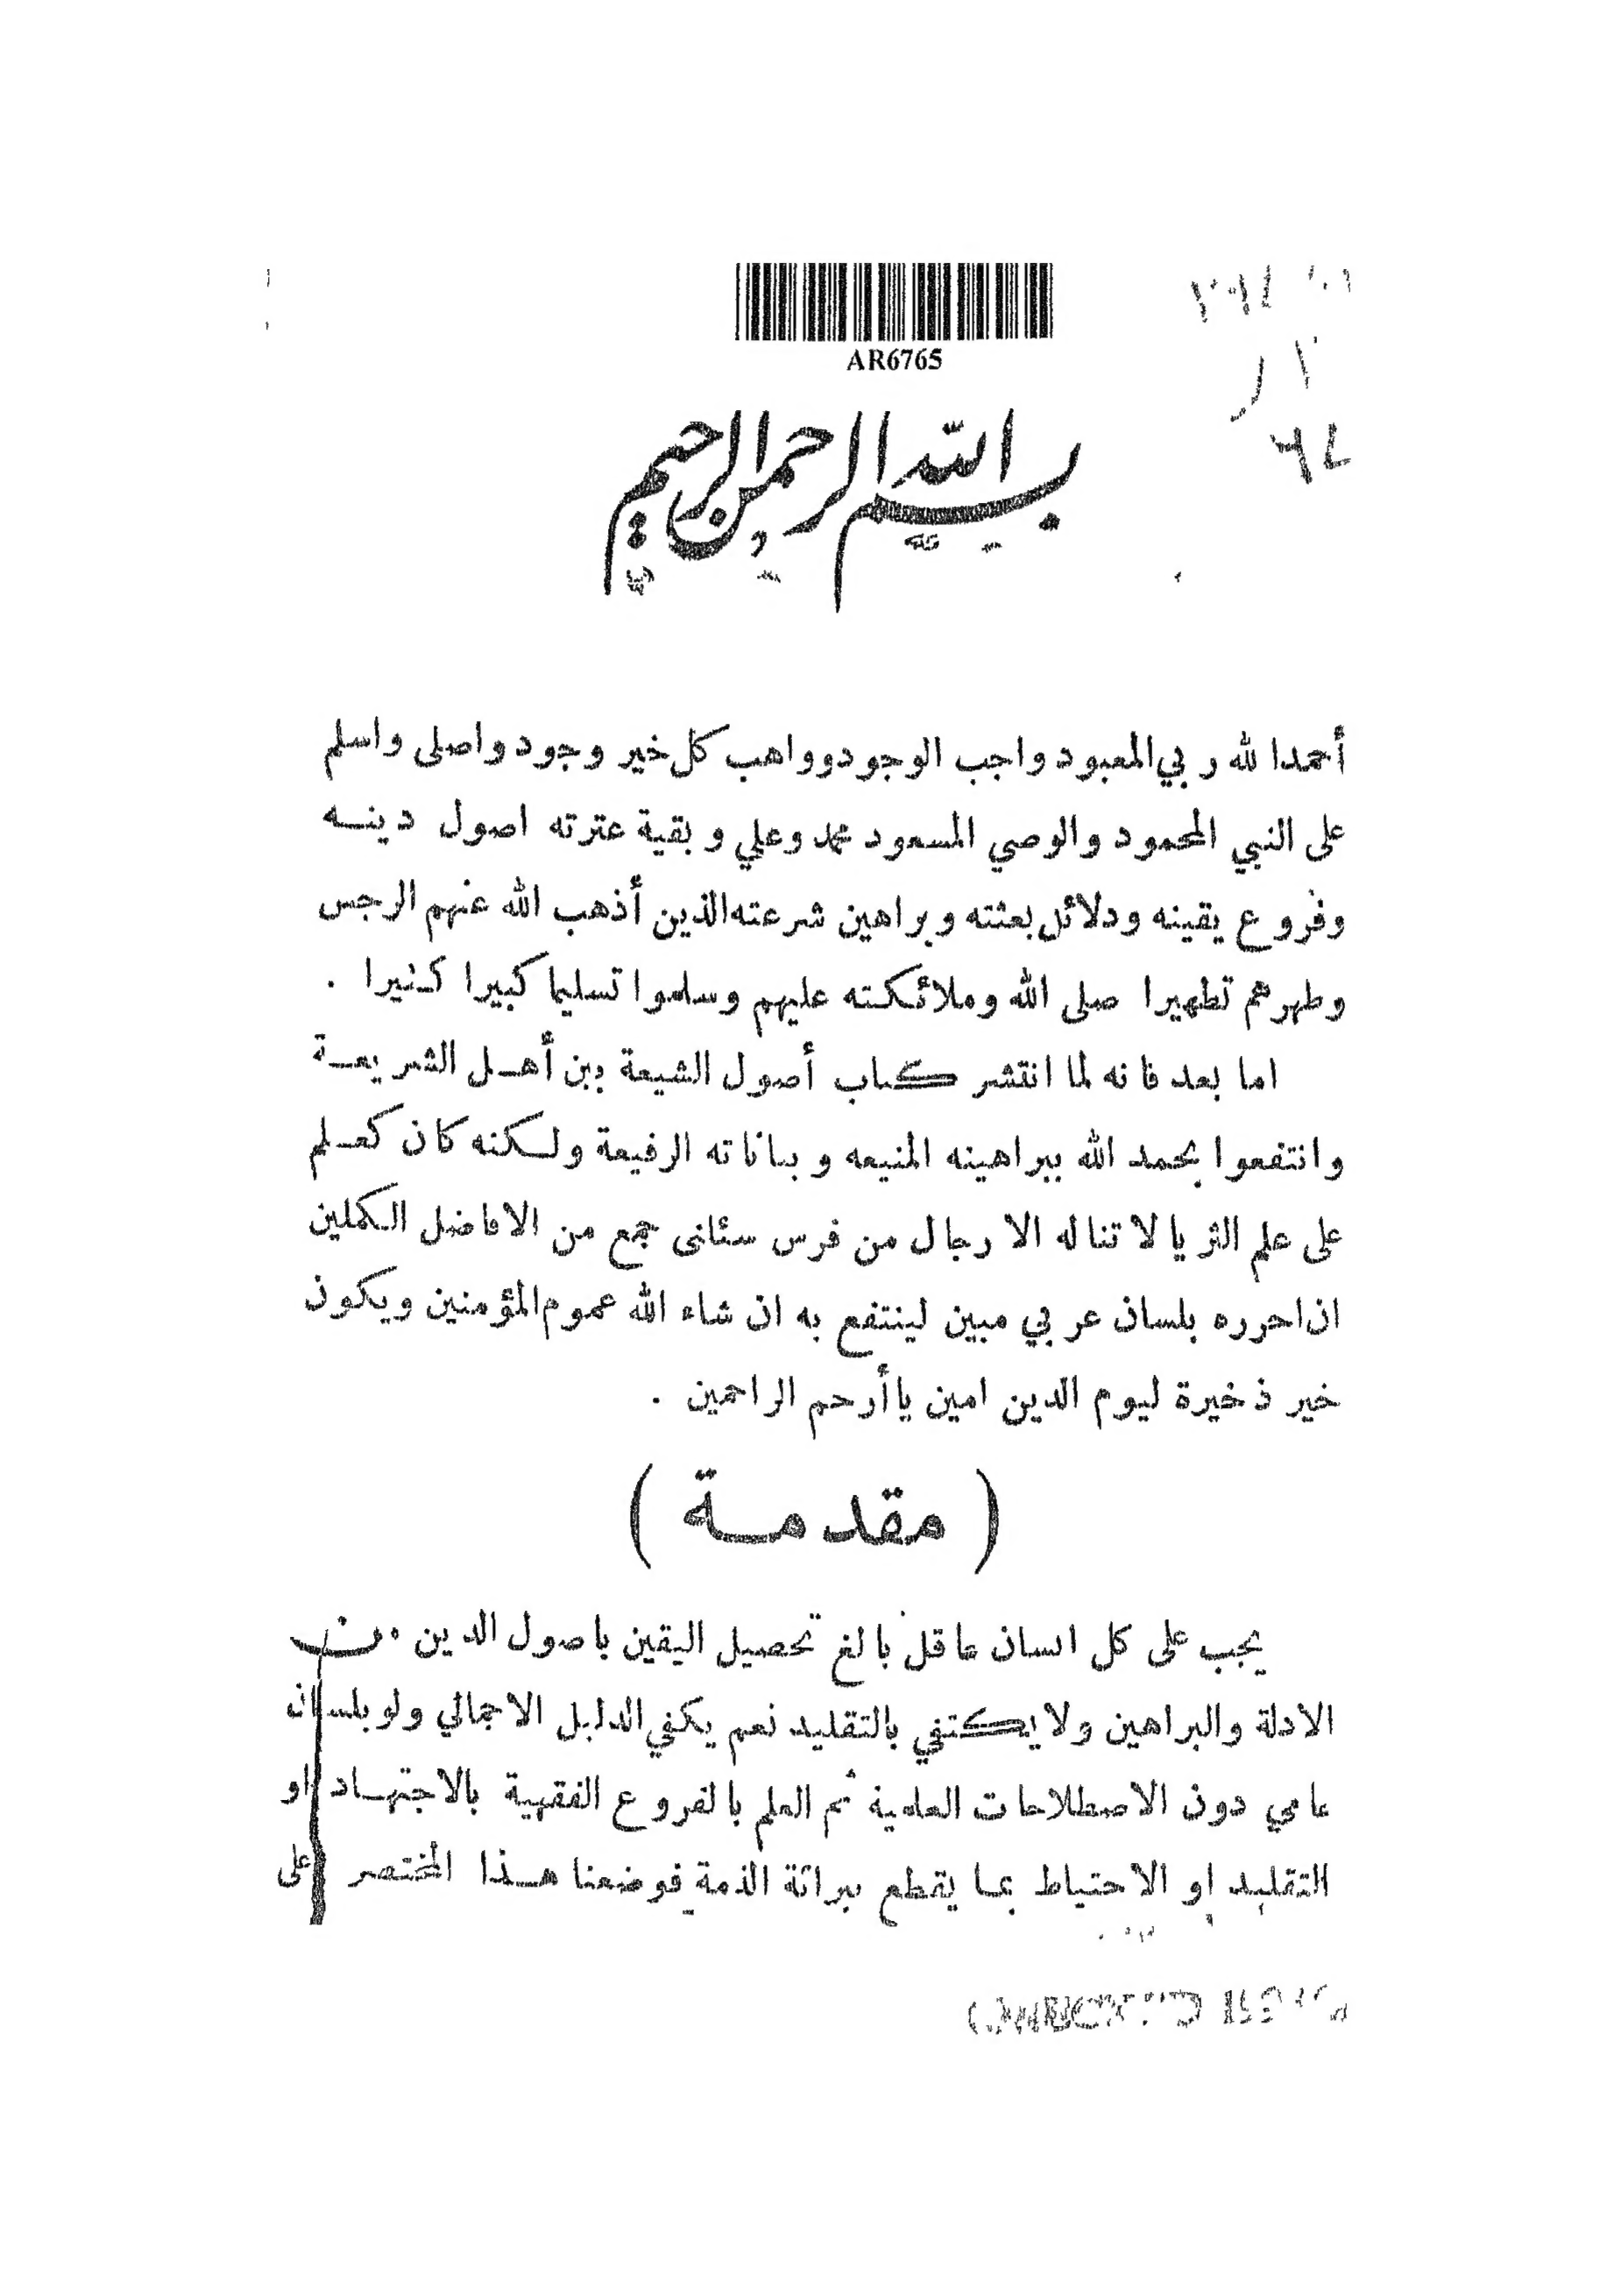 AR6765
بسم الله الرحمن الرحيم
أحمد الله ربي المعبود واجب الوجود وواهب كل خير وجود واصلى واسلم
على النبي المحمود والوصي المسعود محمد وعلي وبقية عترته اصول دينه
وفروع يقينه ودلائل بعثته وبراهين شرعته الذين أذهب الله عنهم الرجس
وطهرهم تطهيرا صلى الله وملائكته عليهم وسلموا تسليما كبيرا كثيرا .
اما بعد فانه لما انتشر كتاب أصول الشيعة بين أهل الشريعة
وانتفعوا بحمد الله ببراهينه المنيعه وبياناته الرفيعة ولكنه كان كعلم
على علم الثريا لا تناله الا رجال من فرس سئلنى جمع من الافاضل الكملين
ان احرره بلسان عربي مبين لينتفع به ان شاء الله عموم المؤمنين ويكون
خير ذخيرة ليوم الدين امين يا أرحم الراحمين .
( مقدمة )
يجب على كل انسان عاقل بالغ تحصيل اليقين باصول الدين من
الادلة والبراهين ولا يكتفي بالتقليد نعم يكفي الدليل الاجمالي ولو بلسان
عامي دون الاصطلاحات العلمية ثم العلم بالفروع الفقهية بالاجتهاد او
التقليد او الاحتياط بما يقطع ببرائة الذمة فوضعنا هذا المختصر على